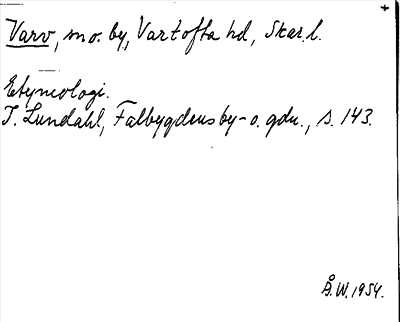 Varv, mo. by, Vartofta hd, Skar. l.
Etymologi.
I. Lundahl, Falbygdens by- o. gdn., s. 143.
Å.W. 1954.